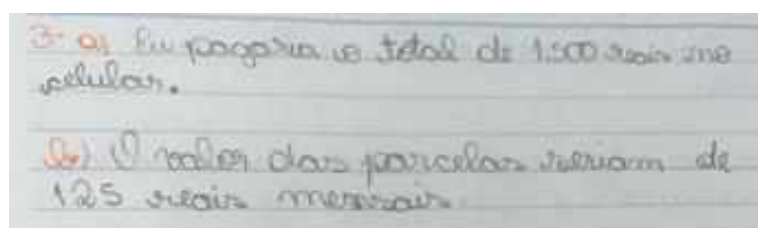 3- a) Eu pagaria o total de 1.500 reais no
celular.
b) O valor das parcelas seriam de
125 reais mensais.